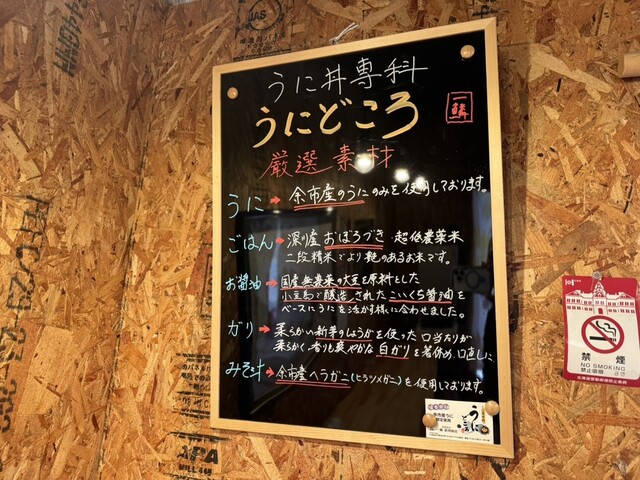 うに丼専科
うにどころ
一鱗
厳選素材
うに→ 余市産のうにのみを使用しております。
ごはん→ 深川産おぼろづき・超低農薬米
二段精米でより艶のあるお米です。
お醤油→ 国産無農薬の大豆を原料とした
小豆島で醸造されたこいくち醤油を
ベースにうにを活かす様に合わせました。
ガリ→ 柔らかい新芽のしょうがを使った口当たりが
柔らかく、香りも爽やかな白ガリを箸休め、口直しに
みそ汁→ 余市産ヘラガニ(ヒラツメガニ)を使用しております。
うに
禁煙
NO SMOKING
禁止吸烟
금연
JAS
APA